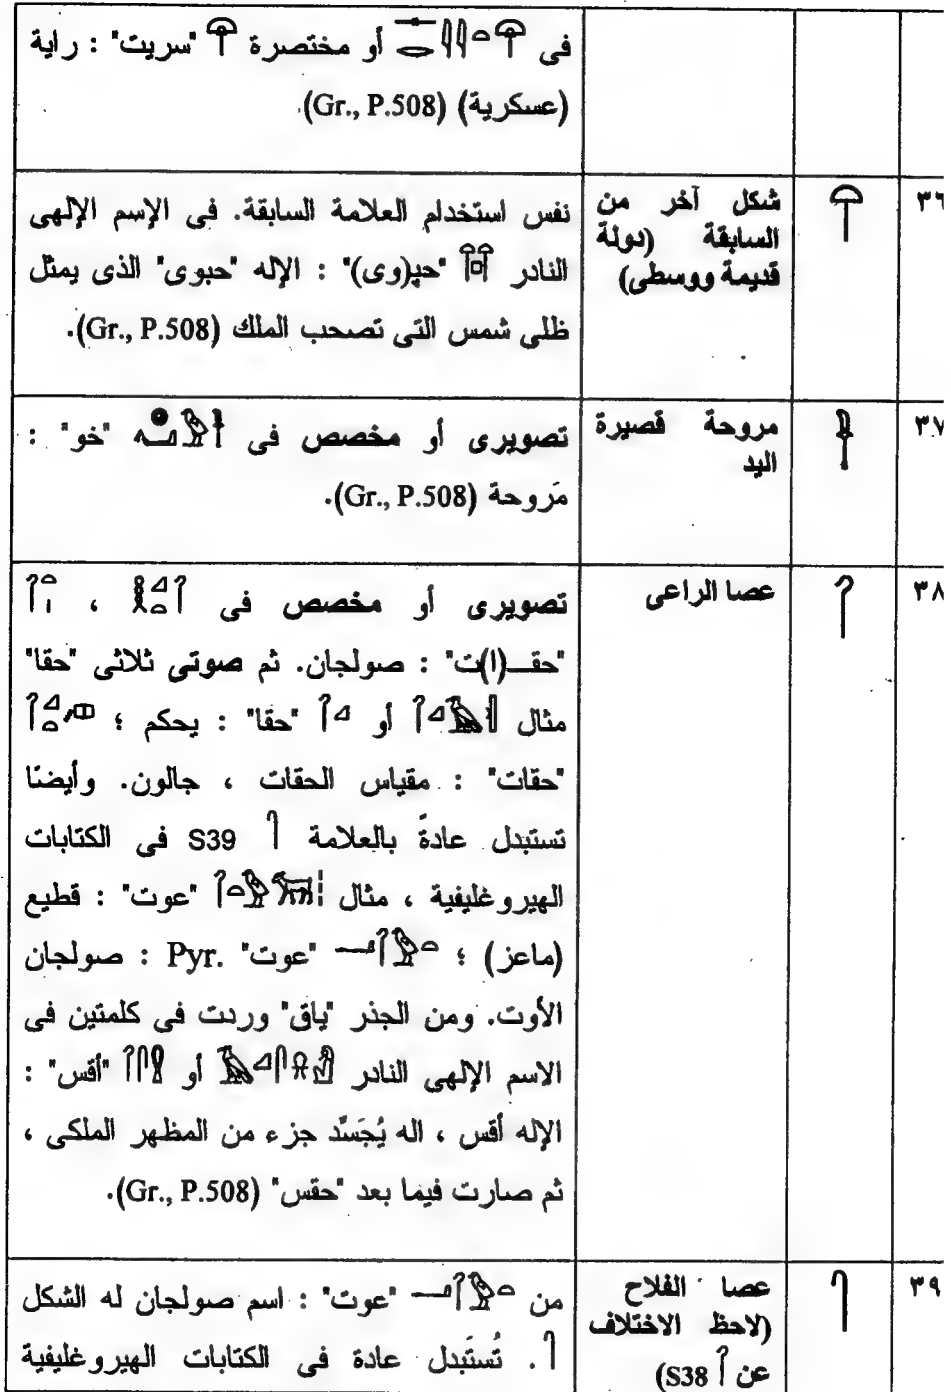 فى أو مختصرة "سريت" : راية
(عسكرية) (Gr., P.508).
٣٦
شكل آخر من
السابقة (دولة
قديمة ووسطى)
نفس استخدام العلامة السابقة. فى الإسم الإلهى
النادر "حپ(وى)" : الإله "حبوى" الذى يمثل
ظلى شمس التى تصحب الملك (Gr., P.508).
٣٧
مروحة قصيرة
اليد
تصويرى أو مخصص فى "خو" :
مَروحة (Gr., P.508).
٣٨
عصا الراعى
تصويرى أو مخصص فى ،
"حقـ(ا)ت" : صولجان. ثم صوتى ثلاثى "حقا"
مثال أو "حقا" : يحكم ؛
"حقات" : مقياس الحقات ، جالون. وأيضًا
تستبدل عادةً بالعلامة S39 فى الكتابات
الهيروغليفية ، مثال "عوت" : قطيع
(ماعز) ؛ "عوت" Pyr. : صولجان
الأوت. ومن الجذر "ياق" وردت فى كلمتين فى
الاسم الإلهى النادر أو "أقس" :
الإله أقس ، اله يُجَسِّد جزء من المظهر الملكى ،
ثم صارت فيما بعد "حقس" (Gr., P.508).
٣٩
عصا الفلاح
(لاحظ الاختلاف
عن S38)
من "عوت" : اسم صولجان له الشكل
. تُستَبدل عادة فى الكتابات الهيروغليفية